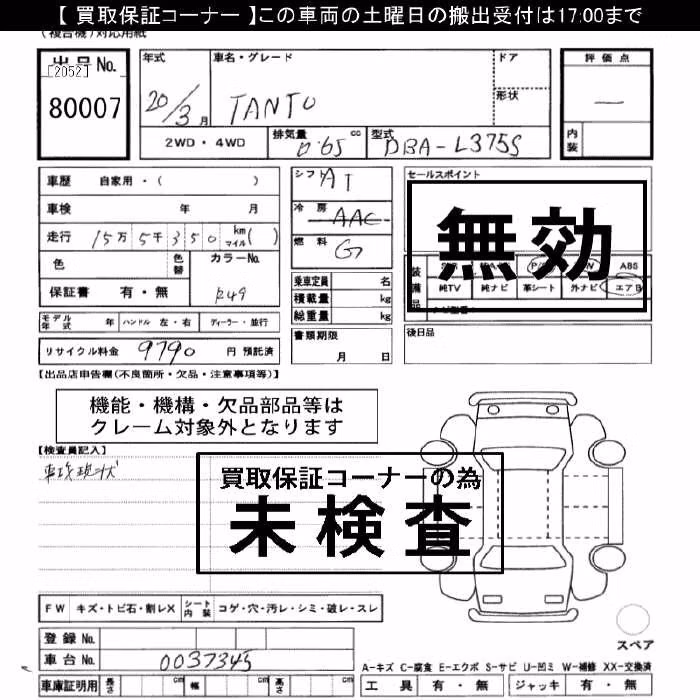 【 買取保証コーナー 】この車両の土曜日の搬出受付は17:00まで
(複合機)対応用紙
出品No.
[2052]
80007
年式
20/3月
車名・グレード
TANTO
ドア
形状
評価点
—
内装
2WD・4WD
排気量 0.65 cc
型式 DBA-L375S
車歴 自家用・( )
車検 年 月
走行 15万5千350 km マイル( )
色
色替
カラーNo.
R49
保証書 有・無
シフト AT
冷房 AAC
燃料 G
乗車定員 名
積載量 kg
総重量 kg
セールスポイント
無効
装備品
ABS
純TV 純ナビ 革シート 外ナビ エアB
モデル年式 年 ハンドル 左・右 ディーラー・並行
書類期限
月 日
後日品
リサイクル料金 9790 円 預託済
【出品店申告欄(不良箇所・欠品・注意事項等)】
機能・機構・欠品部品等は
クレーム対象外となります
【検査員記入】
車攻現状
買取保証コーナーの為
未検査
FW キズ・トビ石・割レX
シート内装 コゲ・穴・汚レ・シミ・破レ・スレ
登録No.
車台No. 0037345
車庫証明用 長さ cm 幅 cm 高さ cm
スペア
A-キズ C-腐食 E-エクボ S-サビ U-凹ミ W-補修 XX-交換済
工具 有・無 ジャッキ 有・無